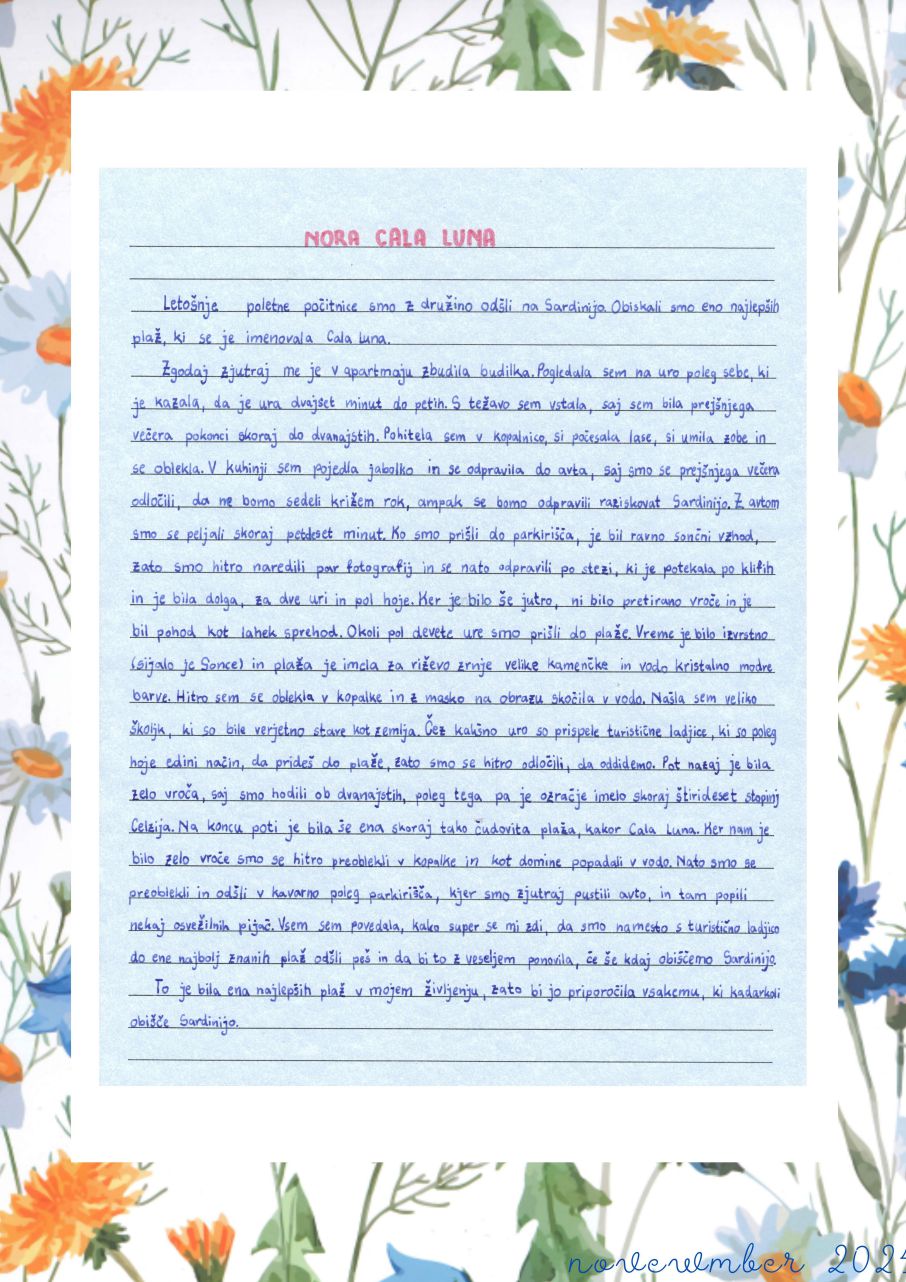 NORA CALA LUNA
Letošnje poletne počitnice smo z družino odšli na Sardinijo. Obiskali smo eno najlepših
plaž, ki se je imenovala Cala Luna.
Zgodaj zjutraj me je v apartmaju zbudila budilka. Pogledala sem na uro poleg sebe, ki
je kazala, da je ura dvajset minut do petih. S težavo sem vstala, saj sem bila prejšnjega
večera pokonci skoraj do dvanajstih. Pohitela sem v kopalnico, si počesala lase, si umila zobe in
se oblekla. V kuhinji sem pojedla jabolko in se odpravila do avta, saj smo se prejšnjega večera
odločili, da ne bomo sedeli križem rok, ampak se bomo odpravili raziskovat Sardinijo. Z avtom
smo se peljali skoraj petdeset minut. Ko smo prišli do parkirišča, je bil ravno sončni vzhod,
zato smo hitro naredili par fotografij in se nato odpravili po stezi, ki je potekala po klifih
in je bila dolga, za dve uri in pol hoje. Ker je bilo še jutro, ni bilo pretirano vroče in je
bil pohod kot lahek sprehod. Okoli pol devete ure smo prišli do plaže. Vreme je bilo izvrstno
(sijalo je Sonce) in plaža je imela za riževo zrnje velike kamenčke in vodo kristalno modre
barve. Hitro sem se oblekla v kopalke in z masko na obrazu skočila v vodo. Našla sem veliko
školjk, ki so bile verjetno stare kot zemlja. Čez kakšno uro so prispele turistične ladjice, ki so poleg
hoje edini način, da prideš do plaže, zato smo se hitro odločili, da oddidemo. Pot nazaj je bila
zelo vroča, saj smo hodili ob dvanajstih, poleg tega pa je ozračje imelo skoraj štirideset stopinj
Celzija. Na koncu poti je bila še ena skoraj tako čudovita plaža, kakor Cala Luna. Ker nam je
bilo zelo vroče smo se hitro preoblekli v kopalke in kot domine popadali v vodo. Nato smo se
preoblekli in odšli v kavarno poleg parkirišča, kjer smo zjutraj pustili avto, in tam popili
nekaj osvežilnih pijač. Vsem sem povedala, kako super se mi zdi, da smo namesto s turistično ladjico
do ene najbolj znanih plaž odšli peš in da bi to z veseljem ponovila, če še kdaj obiščemo Sardinijo.
To je bila ena najlepših plaž v mojem življenju, zato bi jo priporočila vsakemu, ki kadarkoli
obišče Sardinijo.